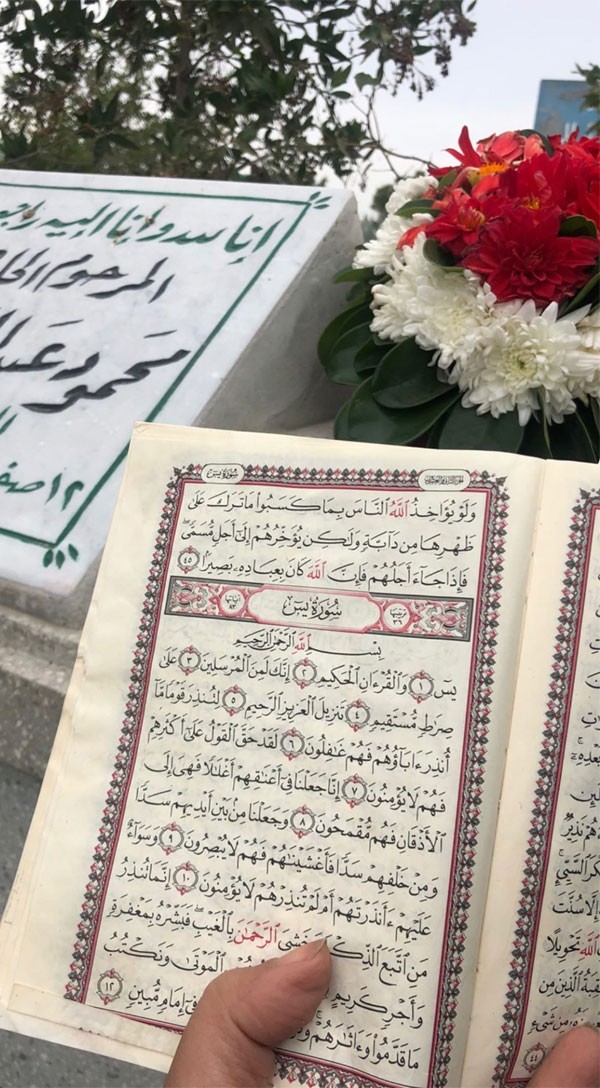 انا لله وانا اليه راجعو
المرحوم الحا
محمود عبدال
١٢ صفر
سورة يس
الجزء الثاني والعشرون
وَلَوْ يُؤَاخِذُ ٱللَّهُ ٱلنَّاسَ بِمَا كَسَبُوا۟ مَا تَرَكَ عَلَىٰ
ظَهْرِهَا مِن دَآبَّةٍ وَلَٰكِن يُؤَخِّرُهُمْ إِلَىٰٓ أَجَلٍ مُّسَمًّى ۖ
فَإِذَا جَآءَ أَجَلُهُمْ فَإِنَّ ٱللَّهَ كَانَ بِعِبَادِهِۦ بَصِيرًۢا ٤٥
ترتيبها ٣٦ سُورَةُ يسٓ آياتها ٨٣
بِسْمِ ٱللَّهِ ٱلرَّحْمَٰنِ ٱلرَّحِيمِ
يسٓ ١ وَٱلْقُرْءَانِ ٱلْحَكِيمِ ٢ إِنَّكَ لَمِنَ ٱلْمُرْسَلِينَ ٣ عَلَىٰ
صِرَٰطٍ مُّسْتَقِيمٍ ٤ تَنزِيلَ ٱلْعَزِيزِ ٱلرَّحِيمِ ٥ لِتُنذِرَ قَوْمًا مَّآ
أُنذِرَ ءَابَآؤُهُمْ فَهُمْ غَٰفِلُونَ ٦ لَقَدْ حَقَّ ٱلْقَوْلُ عَلَىٰٓ أَكْثَرِهِمْ
فَهُمْ لَا يُؤْمِنُونَ ٧ إِنَّا جَعَلْنَا فِىٓ أَعْنَٰقِهِمْ أَغْلَٰلًا فَهِىَ إِلَى
ٱلْأَذْقَانِ فَهُم مُّقْمَحُونَ ٨ وَجَعَلْنَا مِنۢ بَيْنِ أَيْدِيهِمْ سَدًّا
وَمِنْ خَلْفِهِمْ سَدًّا فَأَغْشَيْنَٰهُمْ فَهُمْ لَا يُبْصِرُونَ ٩ وَسَوَآءٌ
عَلَيْهِمْ ءَأَنذَرْتَهُمْ أَمْ لَمْ تُنذِرْهُمْ لَا يُؤْمِنُونَ ١٠ إِنَّمَا تُنذِرُ
مَنِ ٱتَّبَعَ ٱلذِّكْرَ وَخَشِىَ ٱلرَّحْمَٰنَ بِٱلْغَيْبِ ۖ فَبَشِّرْهُ بِمَغْفِرَةٍ
وَأَجْرٍ كَرِيمٍ ٱلْمَوْتَىٰ وَنَكْتُبُ
مَا قَدَّمُوا۟ وَءَاثَٰرَهُمْ ۚ فِىٓ إِمَامٍ مُّبِينٍ ١٢